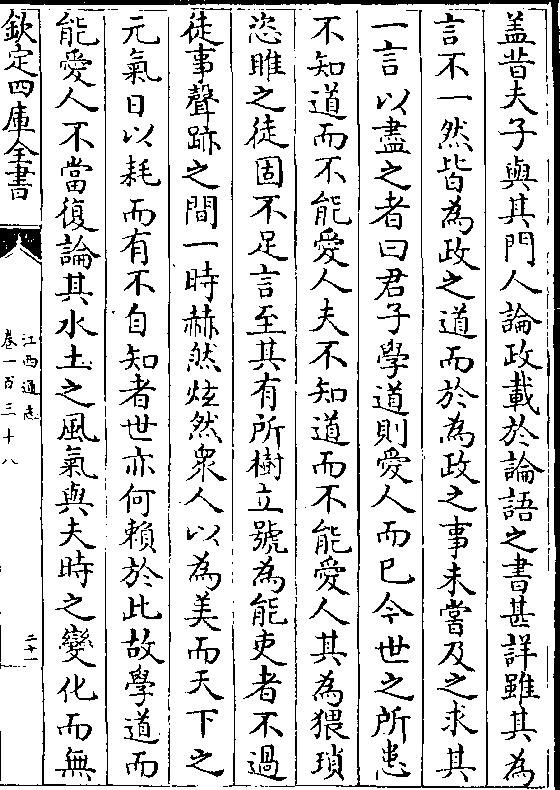 盖昔夫子與其門人論政載於論語之書甚詳雖其為
言不一然皆為政之道而於為政之事未嘗及之求其
一言以盡之者曰君子學道則愛人而已今世之所患
不知道而不能愛人夫不知道而不能愛人其為猥瑣
恣睢之徒固不足言至其有所樹立號為能吏者不過
徒事聲跡之間一時赫然炫然衆人以為美而天下之
元氣日以耗而有不自知者世亦何賴於此故學道而
能愛人不當復論其水土之風氣與夫時之變化而無
欽定四庫全書
江西通志
卷一百三十八
二十一